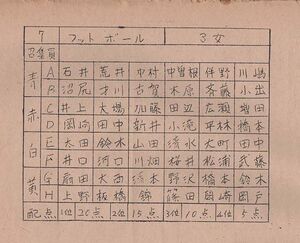 7 フットボール 3女
召集員
青 A 石井 荒井 中村 中曽根 伴野 川嶋
B 沼尻 才川 古賀 木原 斉藤 小出
赤 C 井上 大場 加藤 田辺 広瀬 増田
D 岡崎 田中 新井 小滝 平林 橋本
白 E 太田 鈴木 山田 清水 大町 田中
F 井口 河口 川畑 桜井 松浦 武藤
黄 G 前田 大西 清本 野沢 橋本 鈴木
H 上野 板橋 錦 篠田 奥崎 岡戸
配点 1位 20点 2位 15点 3位 10点 4位 5点